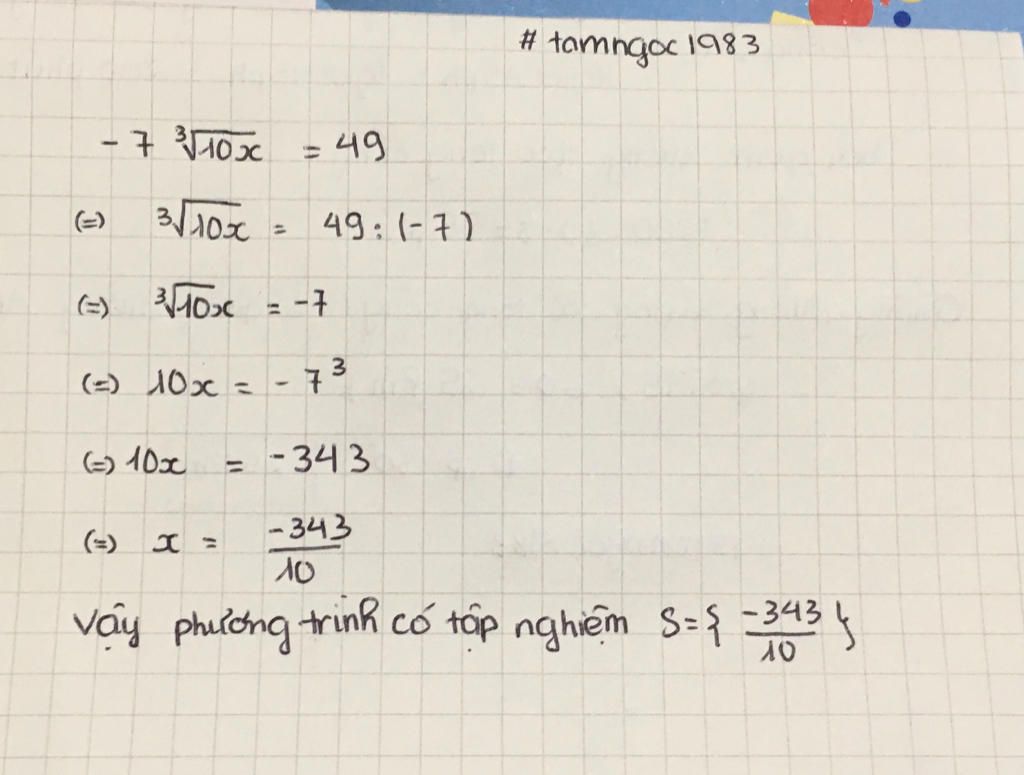 # tamngoc1983
-7 ∛10x = 49
(=) ∛10x = 49 : (-7)
(=) ∛10x = -7
(=) 10x = -7³
(=) 10x = -343
(=) x = -343/10
Vậy phương trình có tập nghiệm S={ -343/10 }